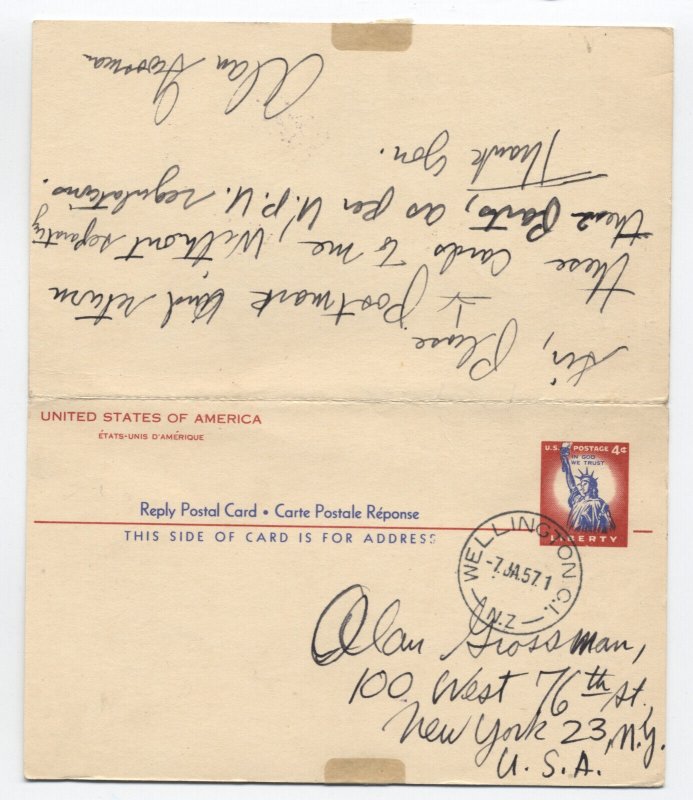 Sir, Please
Postmark and return
these cards to me, Without separating
these parts, as per U.P.U. regulations.
Thank you.
Alan Grossman
UNITED STATES OF AMERICA
ÉTATS-UNIS D'AMÉRIQUE
U.S. POSTAGE 4¢
IN GOD
WE TRUST
LIBERTY
Reply Postal Card • Carte Postale Réponse
THIS SIDE OF CARD IS FOR ADDRESS
WELLINGTON C.1.
-7.JA.57.1
N.Z
Alan Grossman,
100 West 76th St.
New York 23, N.Y.
U.S.A.